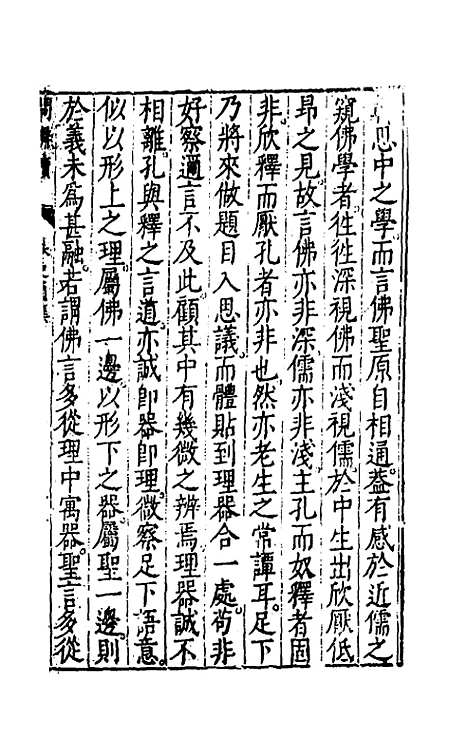 思中之學而言佛聖原自相通蓋有感於近儒之
窺佛學者徃徃深視佛而淺視儒於中生出欣厭低
昂之見故言佛亦非深儒亦非淺主孔而奴釋者固
非欣釋而厭孔者亦非也然亦老生之常譚耳足下
乃將來做題目入思議而體貼到理器合一處苟非
好察邇言不及此顧其中有幾微之辨焉理器誠不
相離孔與釋之言道亦誠卽器卽理微察足下語意
似以形上之理屬佛一邊以形下之器屬聖一邊則
於義未爲甚融若謂佛言多從理中寓器聖言多從